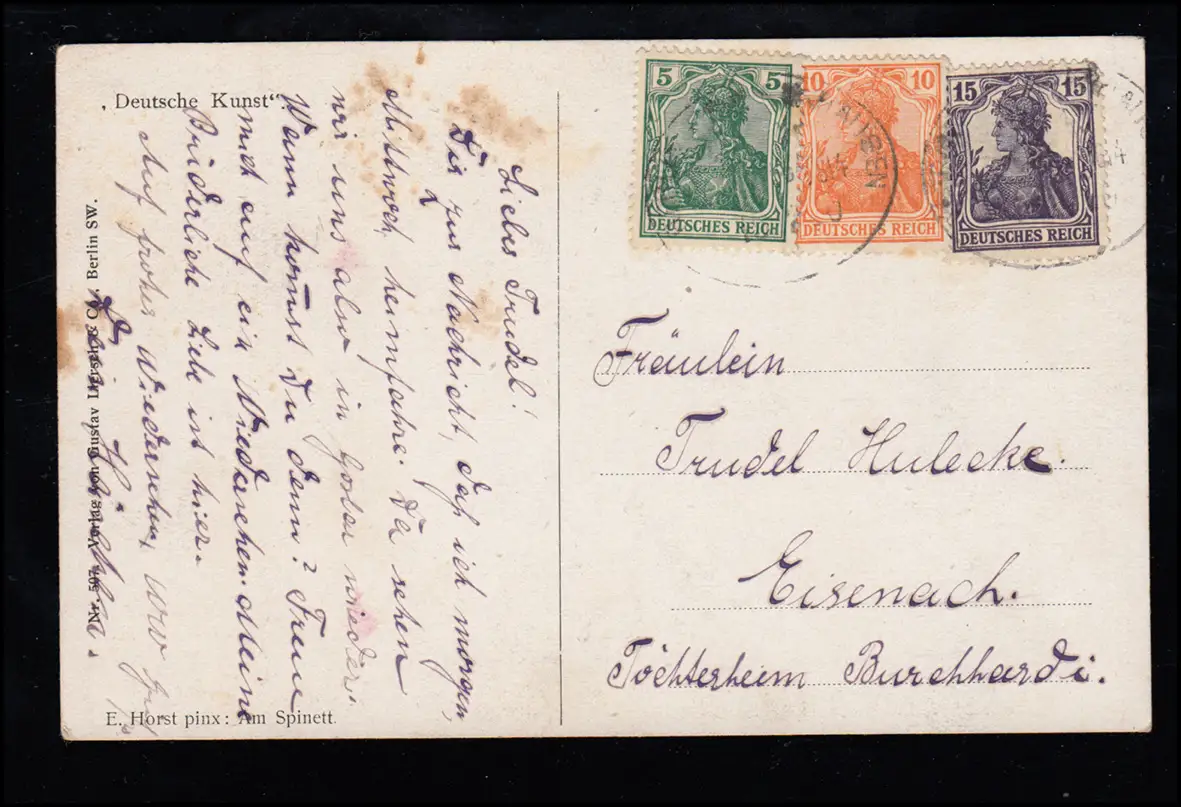 „Deutsche Kunst“
Liebes Trudel!
Dir zur Nachricht, daß ich morgen,
Mittwoch, heimfahre. Da sehen
wir uns also in Goslar wieder.
Wann kommst Du denn? Freue
mich auf ein Wiedersehen. Meine
Brüderliche Liebe ist hier.
Auf frohes Wiedersehen,
Nr. 507. Verlag von Gustav Liersch & Co., Berlin SW.
E. Horst pinx: Am Spinett.
5 5
DEUTSCHES REICH
10 10
DEUTSCHES REICH
15 15
DEUTSCHES REICH
Fräulein
Trudel Hulecke.
Eisenach.
Töchterheim Burchhardi.